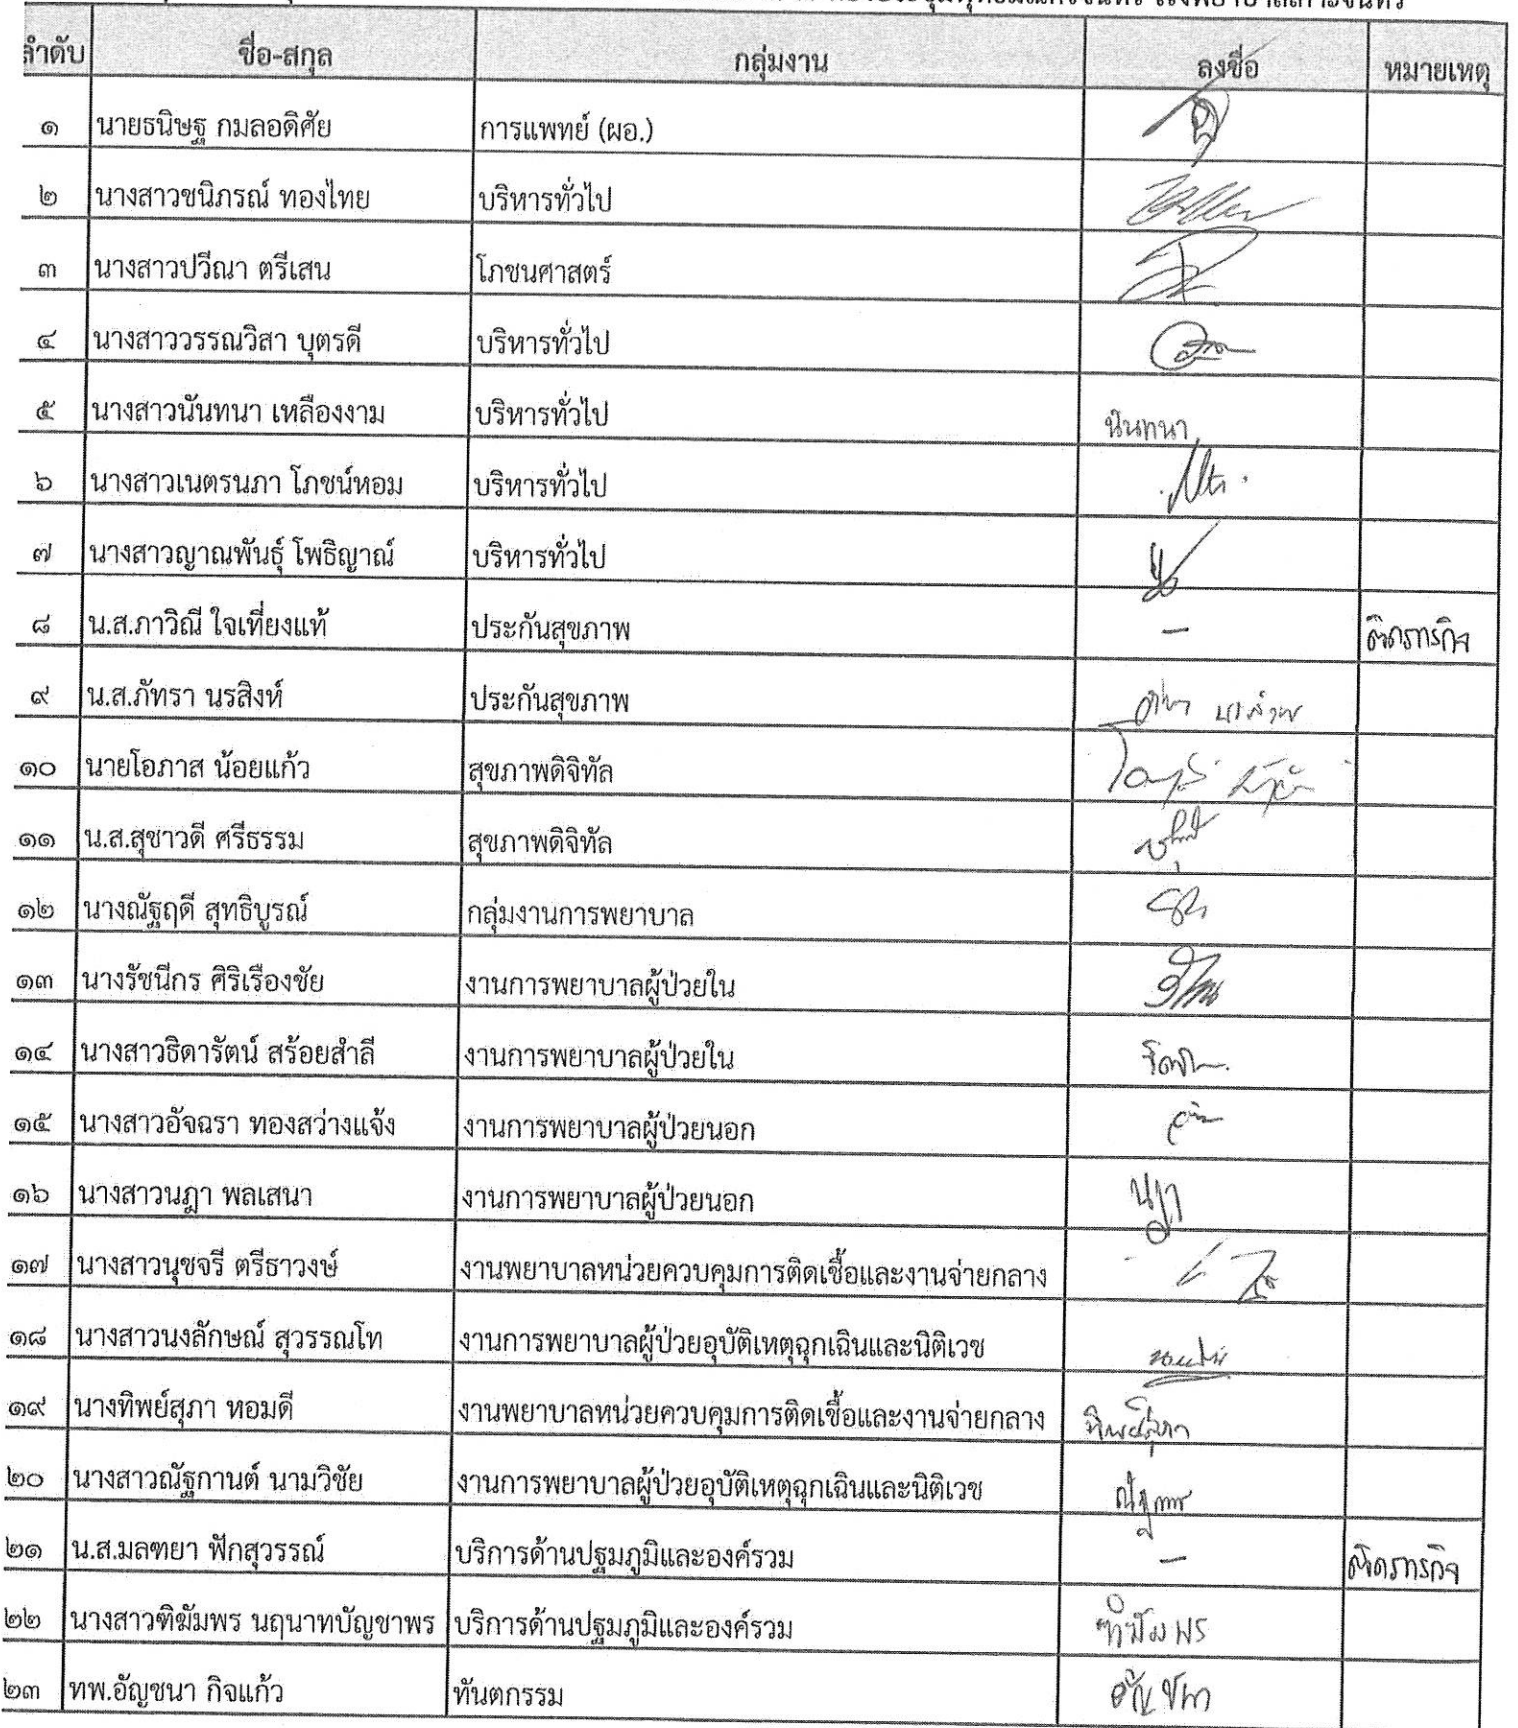 ลำดับ ชื่อ-สกุล กลุ่มงาน ลงชื่อ หมายเหตุ
๑ นายธนิษฐ กมลอดิศัย การแพทย์ (ผอ.)
๒ นางสาวชนิภรณ์ ทองไทย บริหารทั่วไป
๓ นางสาวปวีณา ตรีเสน โภชนศาสตร์
๔ นางสาววรรณวิสา บุตรดี บริหารทั่วไป
๕ นางสาวนันทนา เหลืองงาม บริหารทั่วไป นันทนา
๖ นางสาวเนตรนภา โภชน์หอม บริหารทั่วไป
๗ นางสาวญาณพันธุ์ โพธิญาณ์ บริหารทั่วไป
๘ น.ส.ภาวิณี ใจเที่ยงแท้ ประกันสุขภาพ - ติดภารกิจ
๙ น.ส.ภัทรา นรสิงห์ ประกันสุขภาพ
๑๐ นายโอภาส น้อยแก้ว สุขภาพดิจิทัล
๑๑ น.ส.สุชาวดี ศรีธรรม สุขภาพดิจิทัล
๑๒ นางณัฐฤดี สุทธิบูรณ์ กลุ่มงานการพยาบาล
๑๓ นางรัชนีกร ศิริเรืองชัย งานการพยาบาลผู้ป่วยใน
๑๔ นางสาวธิดารัตน์ สร้อยสำลี งานการพยาบาลผู้ป่วยใน
๑๕ นางสาวอัจฉรา ทองสว่างแจ้ง งานการพยาบาลผู้ป่วยนอก
๑๖ นางสาวนฎา พลเสนา งานการพยาบาลผู้ป่วยนอก นฎา
๑๗ นางสาวนุชจรี ตรีธาวงษ์ งานพยาบาลหน่วยควบคุมการติดเชื้อและงานจ่ายกลาง
๑๘ นางสาวนงลักษณ์ สุวรรณโท งานการพยาบาลผู้ป่วยอุบัติเหตุฉุกเฉินและนิติเวช
๑๙ นางทิพย์สุภา หอมดี งานพยาบาลหน่วยควบคุมการติดเชื้อและงานจ่ายกลาง ทิพย์สุภา
๒๐ นางสาวณัฐกานต์ นามวิชัย งานการพยาบาลผู้ป่วยอุบัติเหตุฉุกเฉินและนิติเวช
๒๑ น.ส.มลฑยา ฟักสุวรรณ์ บริการด้านปฐมภูมิและองค์รวม - ติดภารกิจ
๒๒ นางสาวฑิฆัมพร นฤนาทบัญชาพร บริการด้านปฐมภูมิและองค์รวม ฑิฆัมพร
๒๓ ทพ.อัญชนา กิจแก้ว ทันตกรรม อัญชนา